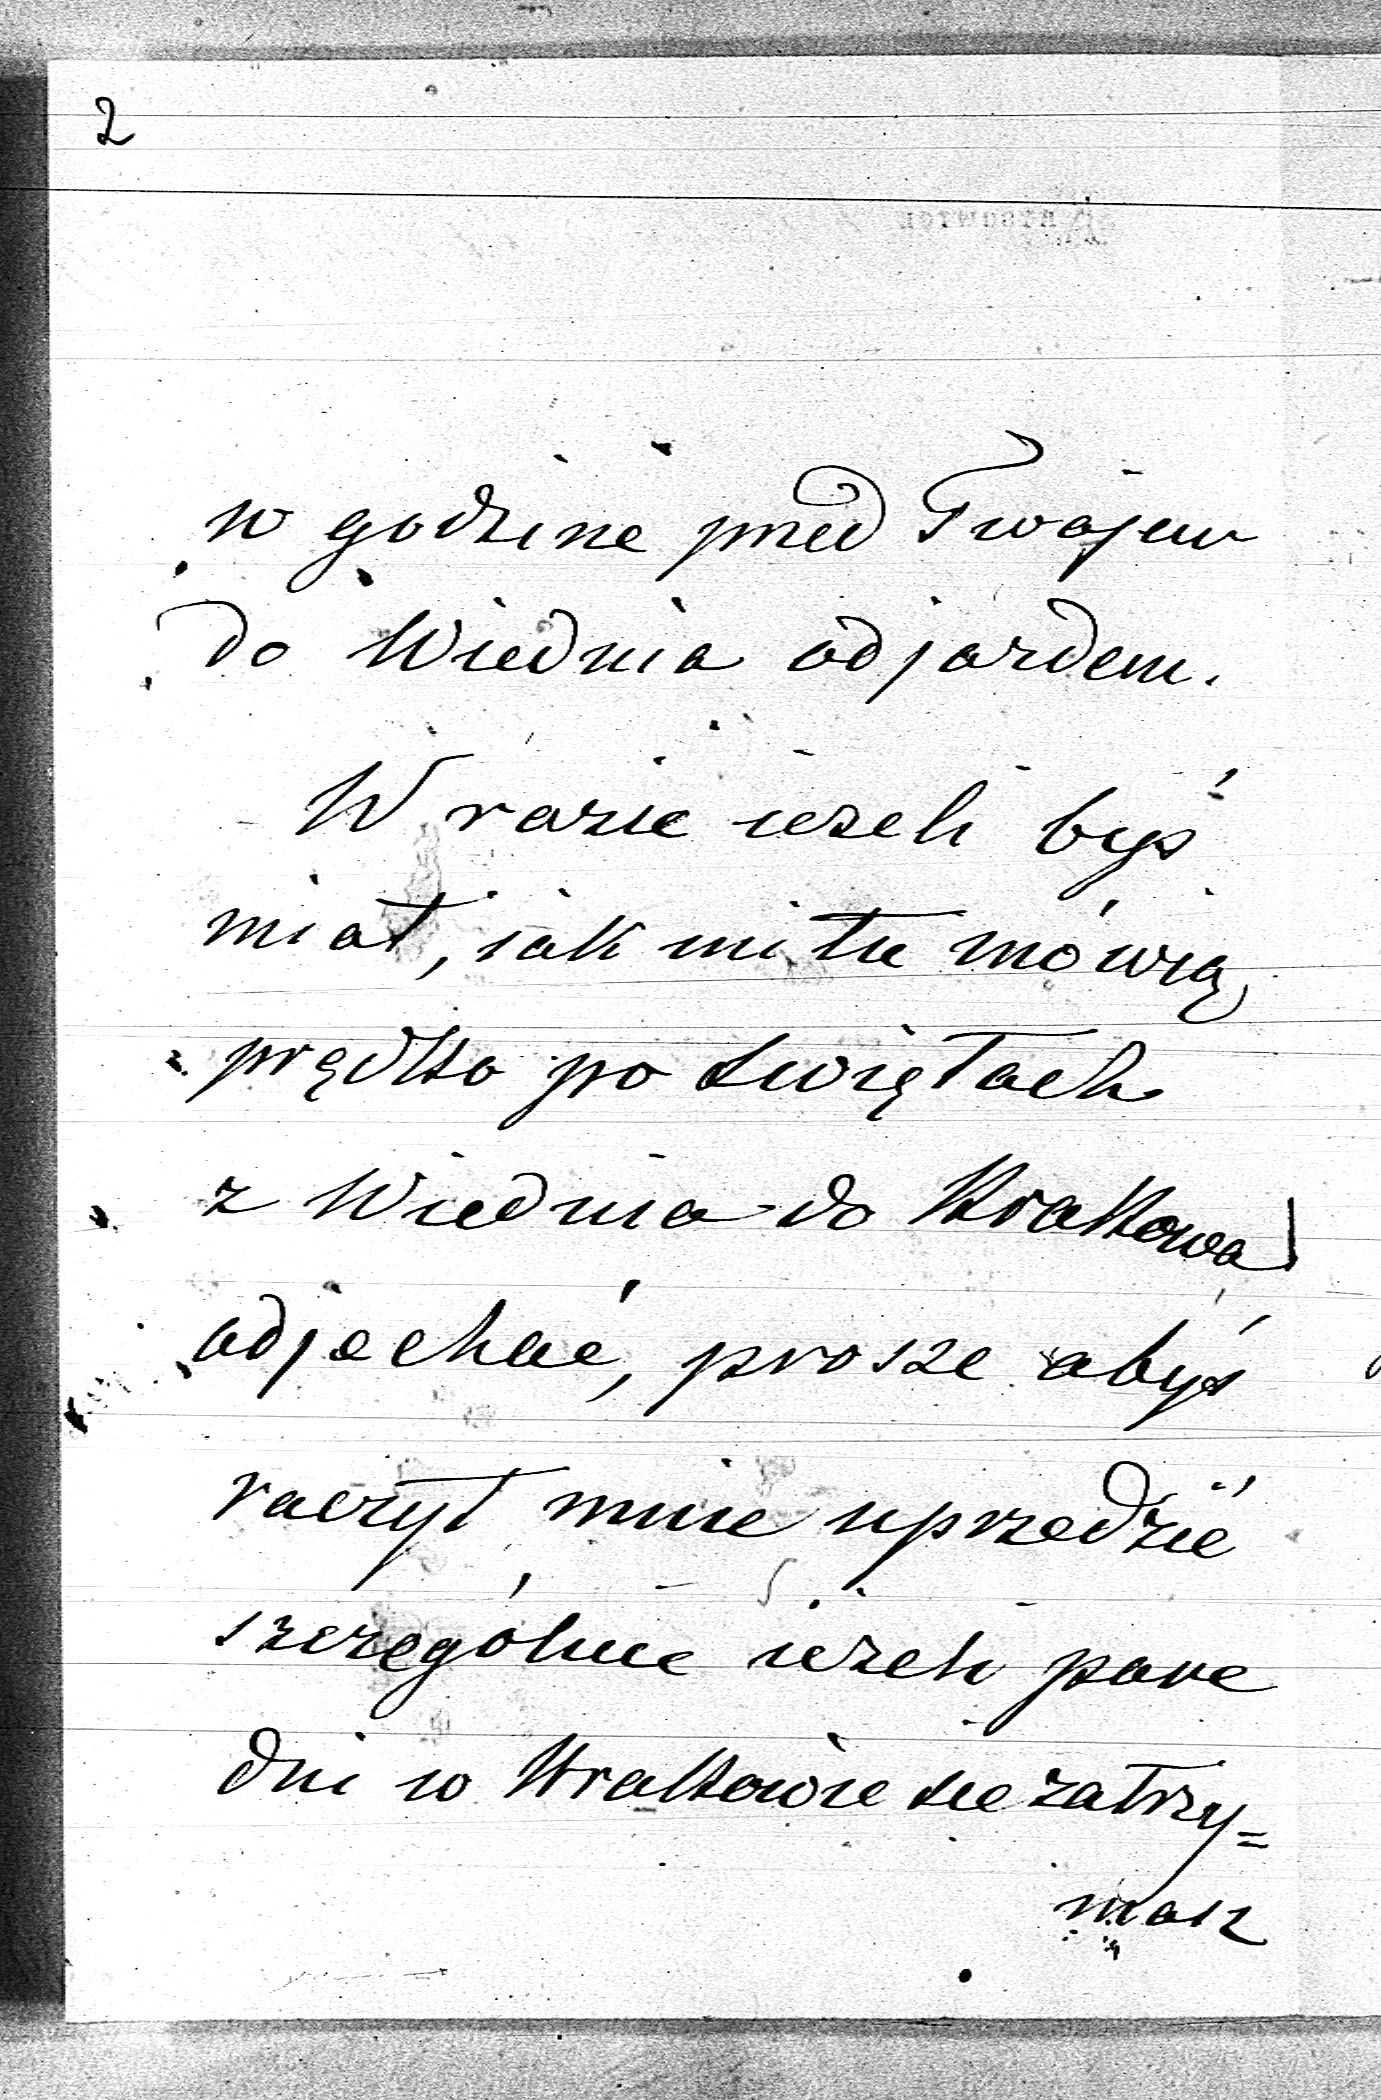 2
w godzine przed Twojem
do Wiednia odjazdem.
W razie ieżeli byś
miał, iak mi tu mówią,
prędko po świętach
z Wiednia do Krakowa
odjechać, prosze abyś
raczył mnie uprzedzić
szczególnie ieżeli pare
dni w Krakowie sie zatrzy=
masz